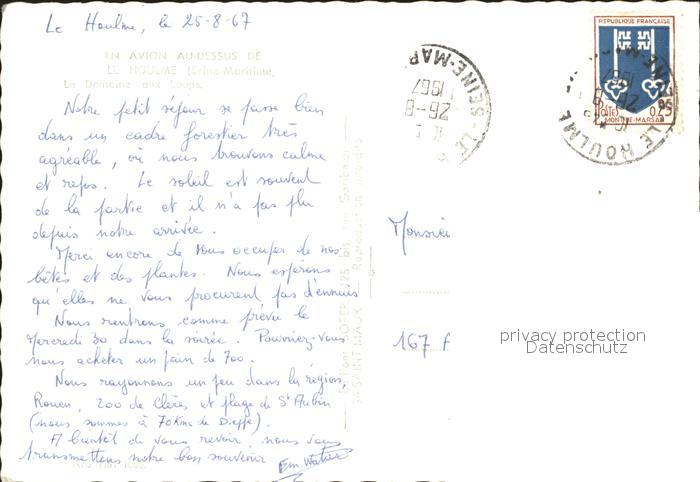 Le Houlme, le 25-8-67
EN AVION AU-DESSUS DE
LE HOULME (Seine-Maritime)
Le Domaine aux Loups.
Notre petit séjour se passe bien
dans un cadre forestier très
agréable, où nous trouvons calme
et repos. Le soleil est souvent
de la partie et il n'a pas plu
depuis notre arrivée.
Merci encore de vous occuper de nos
bêtes et des plantes. Nous espérons
qu'elles ne vous procurent pas d'ennuis
Nous rentrons comme prévu le
Mercredi 30 dans la soirée. Pourriez-vous
nous acheter un pain de 700.
Nous rayonnons un peu dans la région,
Rouen, zoo de Clères et plage de St Aubin
(nous sommes à 70 Kms de Dieppe).
A bientôt de vous revoir, nous vous
transmettons notre bon souvenir
LE HOULME SEINE-MAR
26-8
1967
REPUBLIQUE FRANÇAISE
POSTES 0,25
MONT-DE-MARSAN
Monsieu
167
privacy protection
Datenschutz